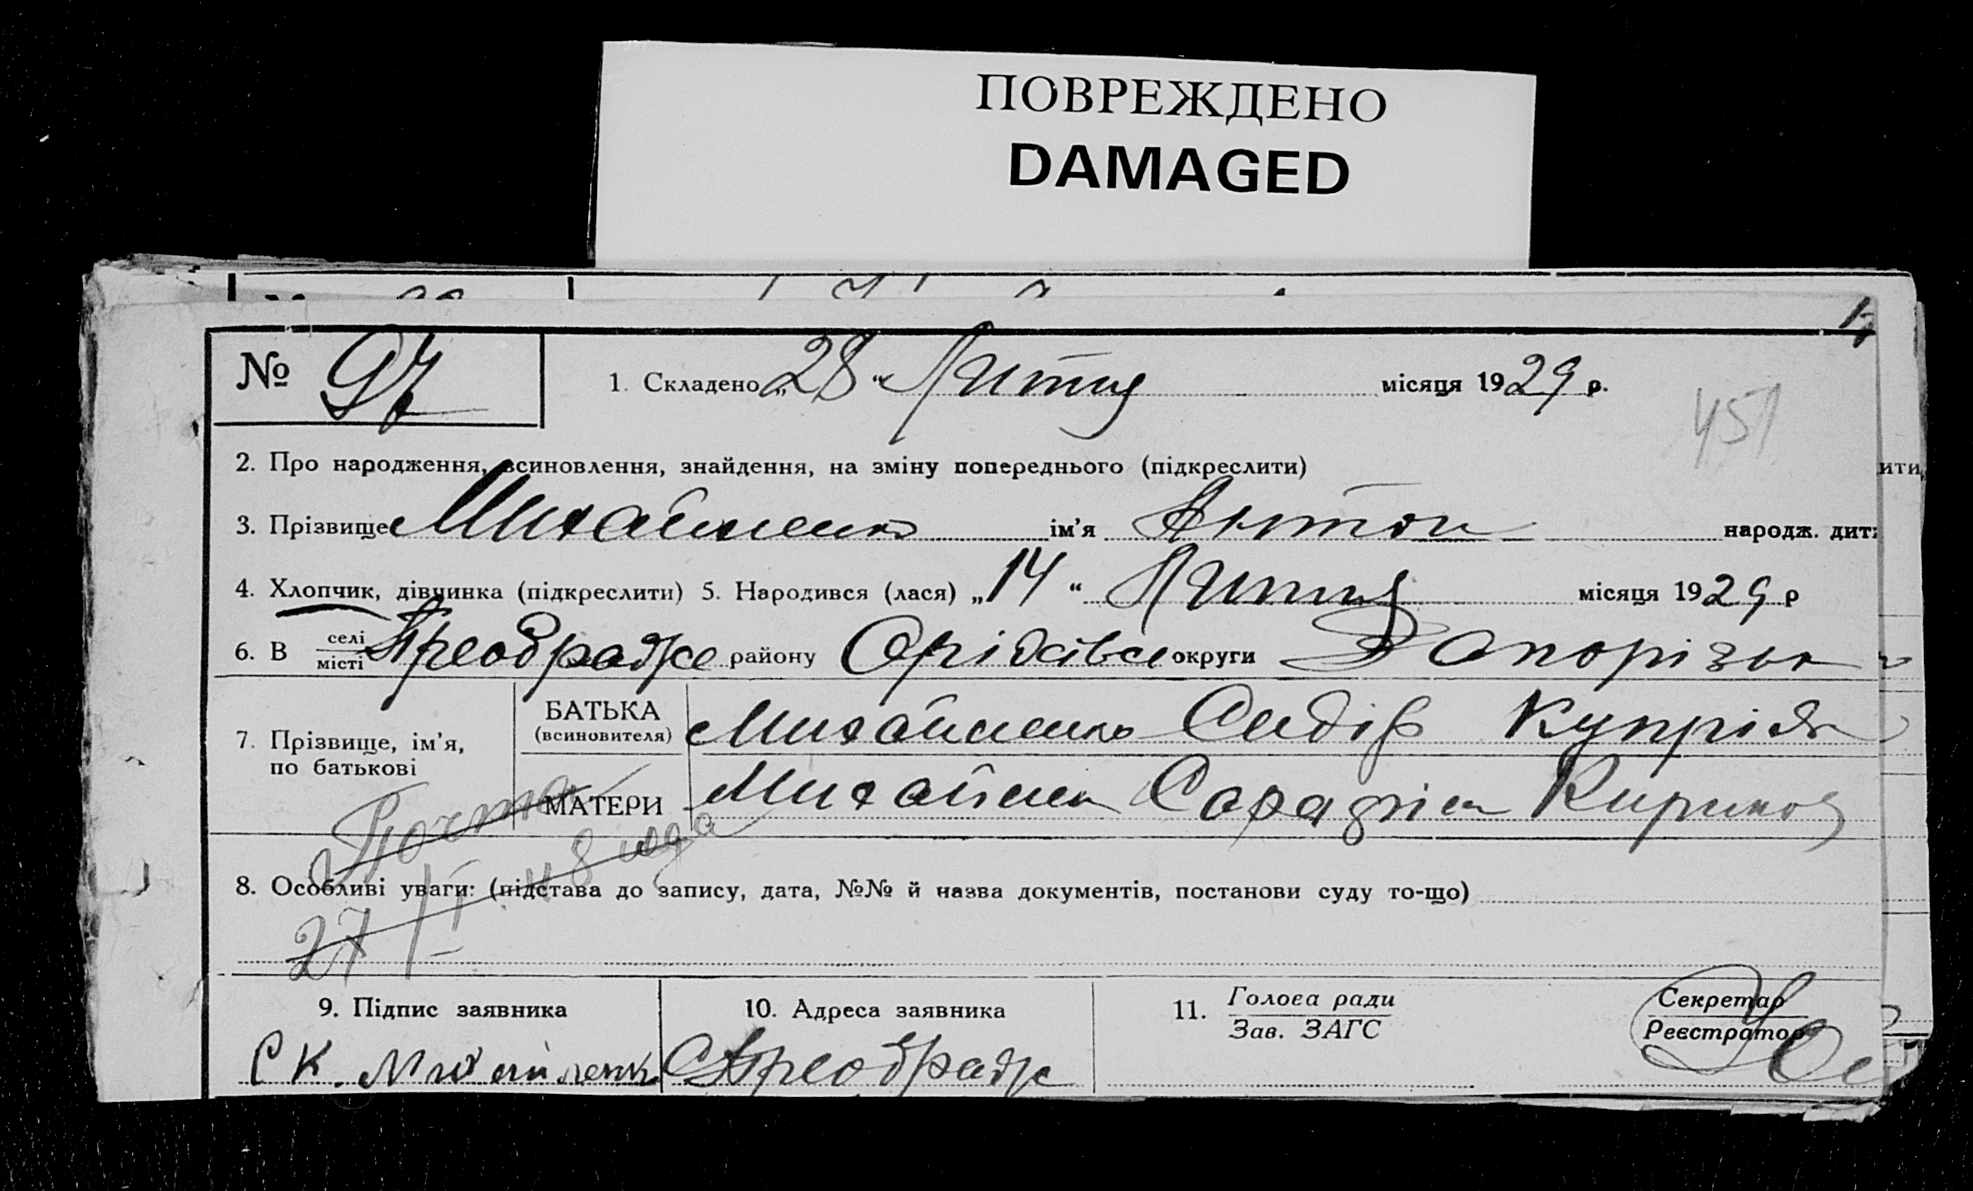 ПОВРЕЖДЕНО
DAMAGED
№ 97
1. Складено „28“ Лютня місяця 1929 р.
451
2. Про народження, всиновлення, знайдення, на зміну попереднього (підкреслити)
ити
3. Прізвище Михайленко ім'я Антон народж. дит
4. Хлопчик, дівчинка (підкреслити) 5. Народився (лася) „14“ місяця 1929 р
6. В селі Преображе району Оріхівсь округи Запорізьк
місті
7. Прізвище, ім'я, по батькові
БАТЬКА (всиновителя) Михайленко Сидір Купріян
МАТЕРИ Михайлен
8. Особливі уваги: (підстава до запису, дата, №№ й назва документів, постанови суду то-що)
27
9. Підпис заявника 10. Адреса заявника 11. Голова ради Секретар
Зав. ЗАГС Реєстратор
С К. Михайленк С Преображ